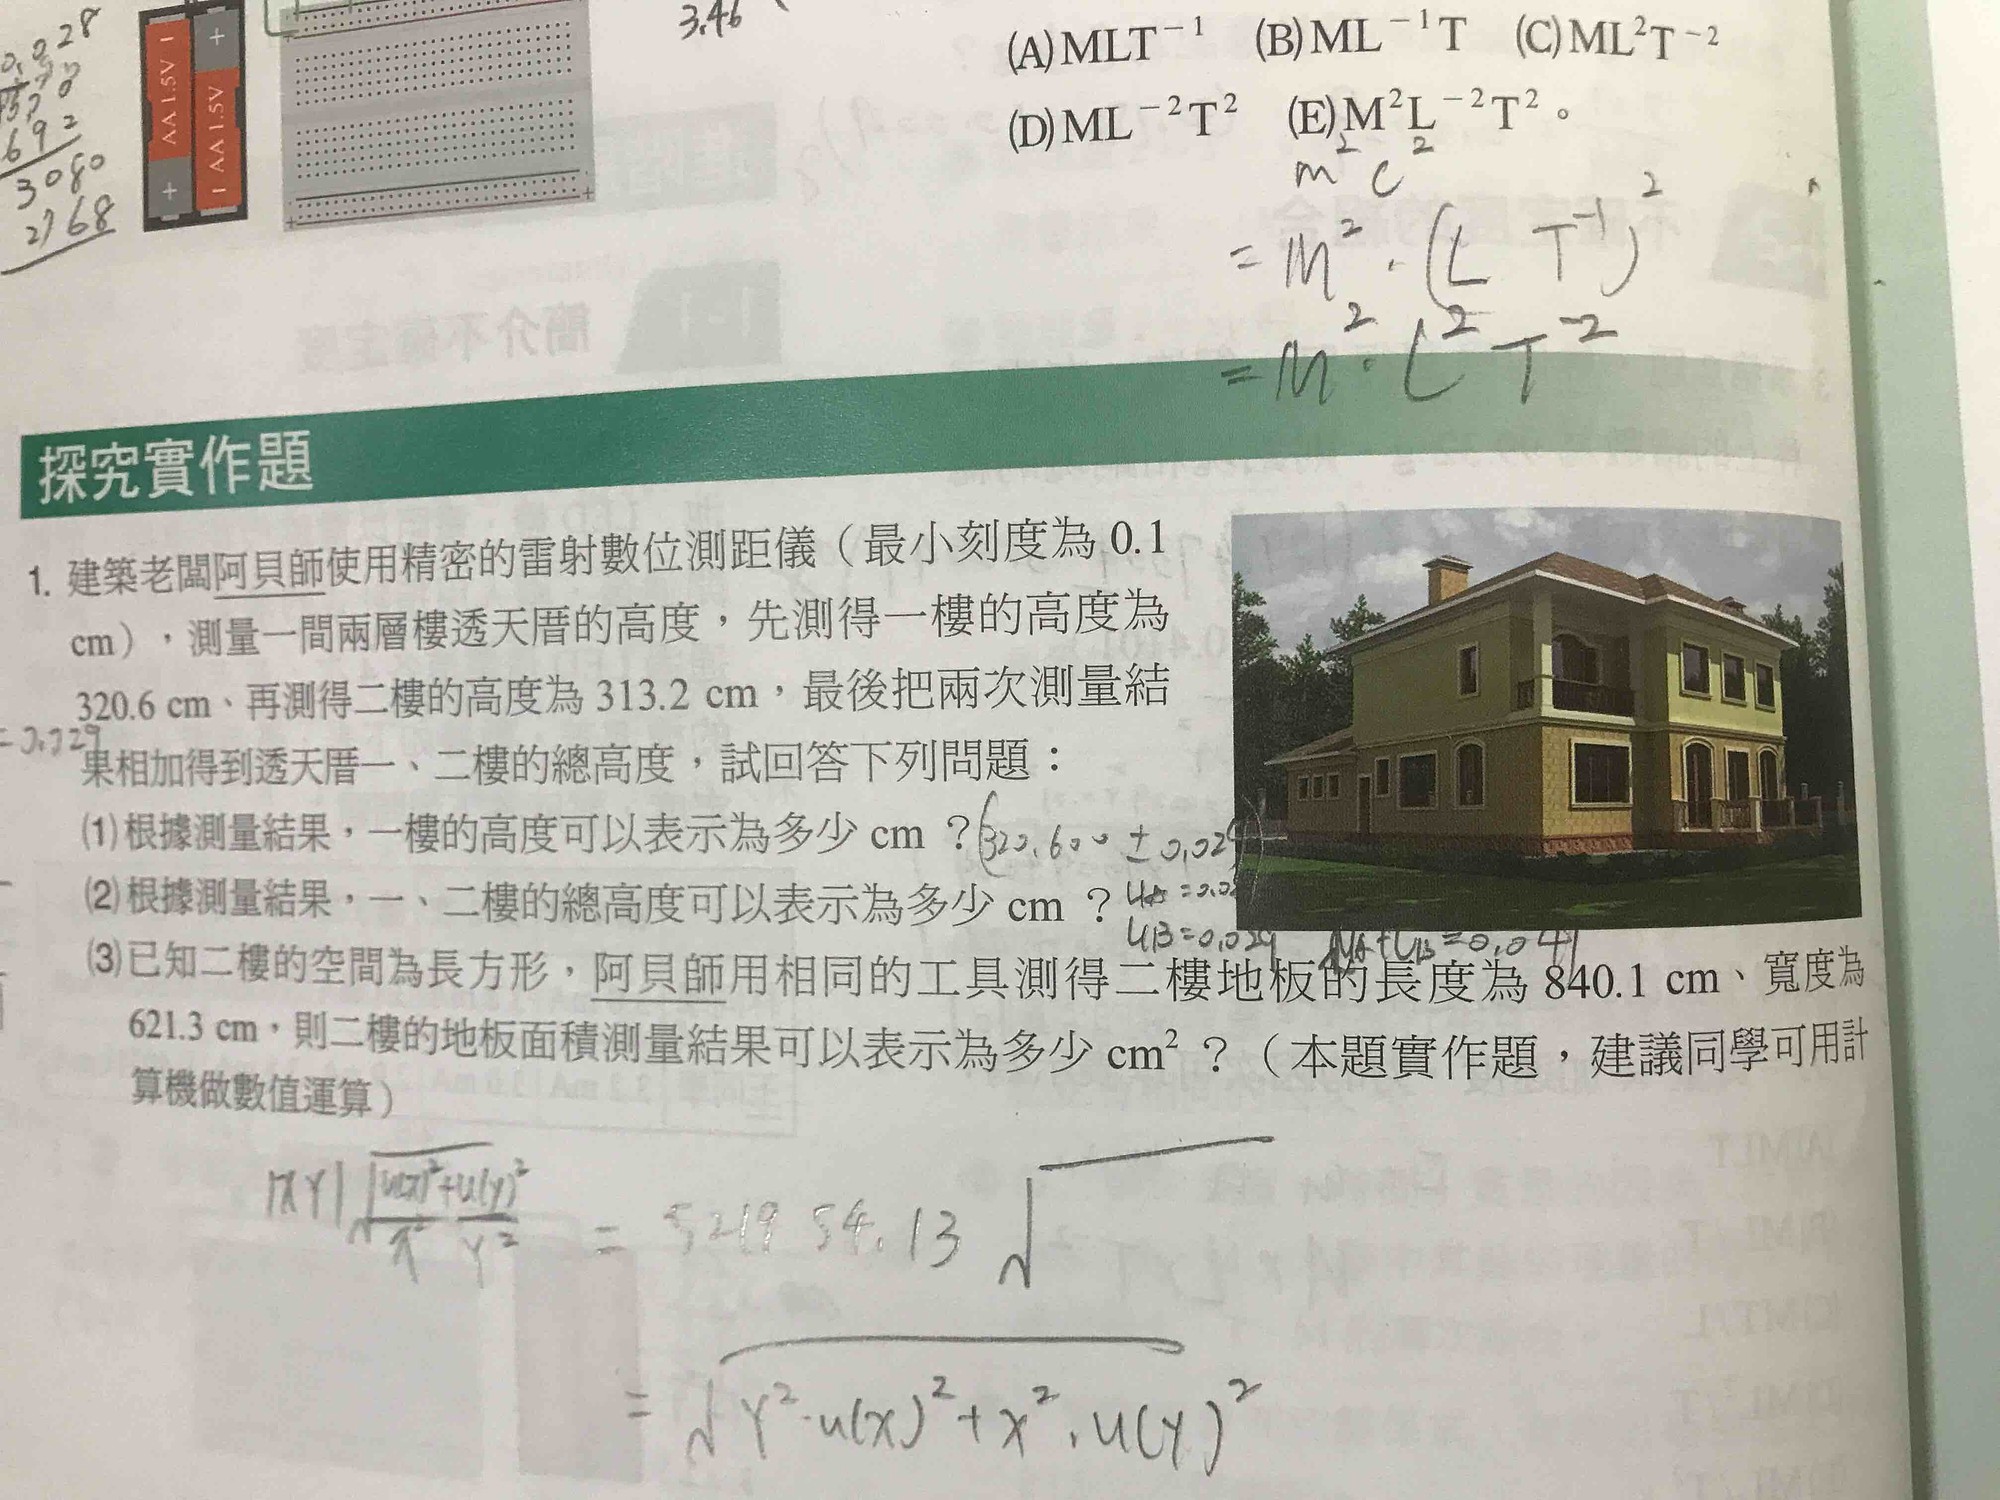 3.46
0.028
692
3080
2768
AA 1.5V
AA 1.5V
(A) MLT⁻¹ (B) ML⁻¹T (C) ML²T⁻²
(D) ML⁻²T² (E) M²L⁻²T²。
m²c²
= M²·(LT⁻¹)²
= M²·L²T⁻²
探究實作題
1. 建築老闆阿貝師使用精密的雷射數位測距儀（最小刻度為 0.1
cm），測量一間兩層樓透天厝的高度，先測得一樓的高度為
320.6 cm、再測得二樓的高度為 313.2 cm，最後把兩次測量結
=0.029
果相加得到透天厝一、二樓的總高度，試回答下列問題：
(1)根據測量結果，一樓的高度可以表示為多少 cm？(320.600 ± 0.029)
(2)根據測量結果，一、二樓的總高度可以表示為多少 cm？
uB=0.029
(3)已知二樓的空間為長方形，阿貝師用相同的工具測得二樓地板的長度為 840.1 cm、寬度為
621.3 cm，則二樓的地板面積測量結果可以表示為多少 cm²？（本題實作題，建議同學可用計
算機做數值運算）
|XY|√u(x)²/x²+u(y)²/Y² = 521954.13 √
= √Y²·u(x)²+x²·u(y)²